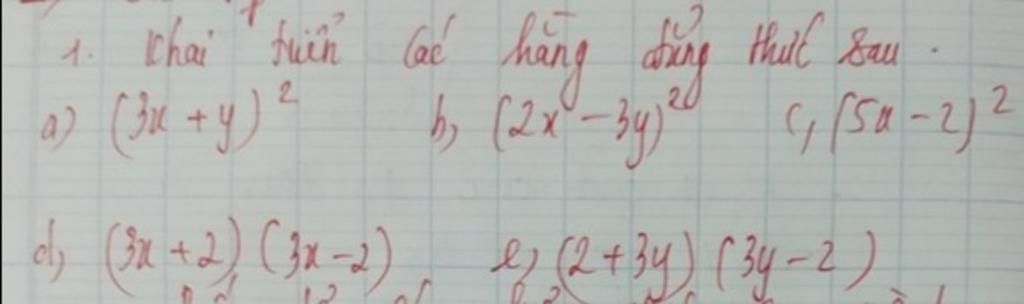 1. Khai triển các hằng đẳng thức sau.
a) (3x + y)² b, (2x - 3y)² c, (5x - 2)²
d, (3x + 2) (3x - 2) e, (2 + 3y) (3y - 2)